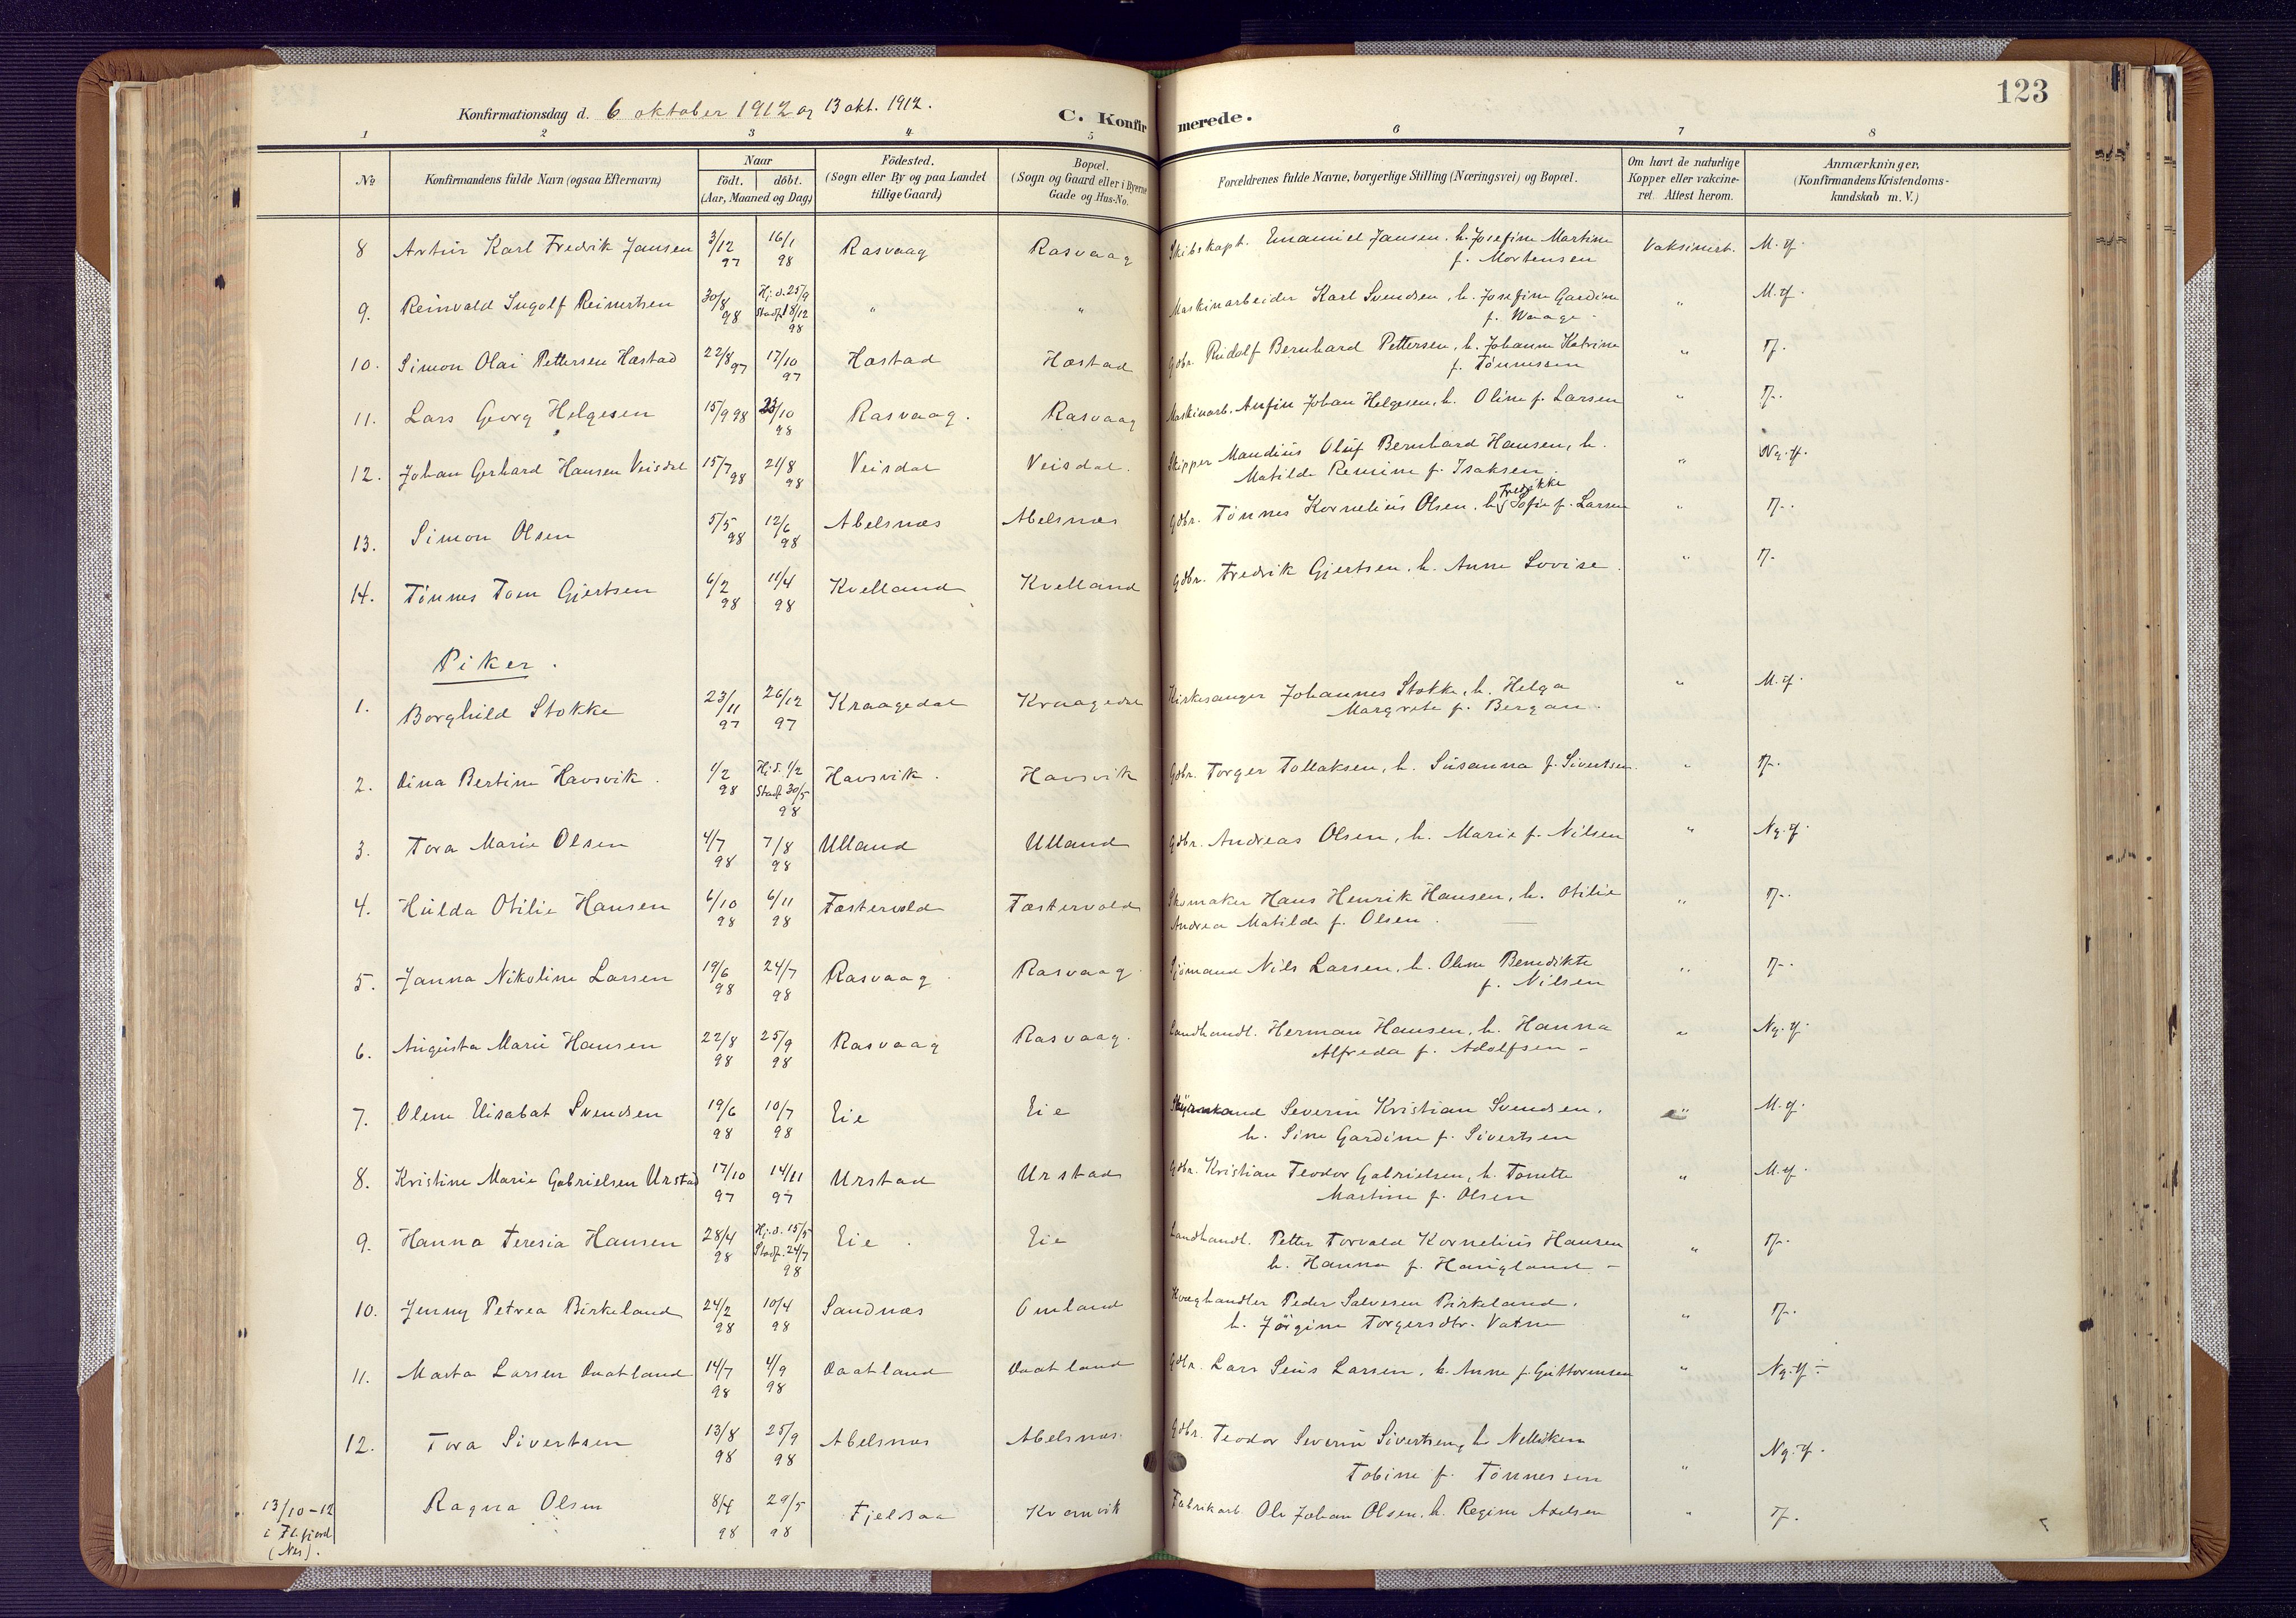 123
Konfirmationsdag d. 6 oktober 1912 og 13 okt. 1912.
C. Konfirmerede.
1 2 3 4 5 6 7 8
No
Konfirmandens fulde Navn (ogsaa Efternavn)
Naar
födt. döbt.
(Aar, Maaned og Dag)
Födested.
(Sogn eller By og paa Landet
tillige Gaard)
Bopæl.
(Sogn og Gaard eller i Byerne
Gade og Hus-No.
Forældrenes fulde Navne, borgerlige Stilling (Næringsvei) og Bopæl.
Om havt de naturlige
Kopper eller vakcine-
ret. Attest herom.
Anmærkninger.
(Konfirmandens Kristendoms-
kundskab m. V.)
8 Artur Karl Fredrik Jansen 3/12 97 16/1 98 Rasvaag Rasvaag Skibskapt. Emanuel Jansen, h. Josefine Martine f. Mortensen Vaksinert. M. tf.
9. Reinvald Ingolf Reinertsen 30/8 98 Hj. d. 25/9 Stadf. 18/12 98 " " Maskinarbeider Karl Svendsen, h. Josefine Gardine f. Waage - " M. tf.
10. Simon Olai Pettersen Hæstad 22/8 97 17/10 97 Hæstad Hæstad Gdbr. Rudolf Bernhard Pettersen, h. Johanne Katrine f. Tønnessen " T.
11. Lars Georg Helgesen 15/9 98 23/10 98 Rasvaag. Rasvaag Maskinarb. Anfin Johan Helgesen, h. Oline f. Larsen " T.
12. Johan Gerhard Hansen Veisdal 15/7 98 21/8 98 Veisdal Veisdal. Skipper Maudius Oluf Bernhard Hansen, h. Matilde Remine f. Isaksen. " Ng. tf.
13. Simon Olsen 5/5 98 12/6 98 Abelsnæs Abelsnæs Gdbr. Tønnes Kornelius Olsen, h. Fredrikke Sofie f. Larsen " T.
14. Tønnes Tom Gjertsen 6/2 98 11/4 98 Kvelland Kvelland Gdbr. Fredrik Gjertsen, h. Anne Lovise. " T.
Piker.
1. Borghild Stokke 23/11 97 26/12 97 Kraagedal Kraagedal Kirkesanger Johannes Stokke, h. Helga Margrete f. Bergan. " M. tf.
2. Dina Bertine Havsvik. 1/2 98 Hj. d. 1/2 Stadf. 30/5 98 Havsvik. Havsvik Gdbr. Torger Tollaksen, h. Susanna f. Sivertsen. " T.
3. Tora Marie Olsen 4/7 98 7/8 98 Ulland Ulland Gdbr. Andreas Olsen, h. Marie f. Nilsen " Ng. tf.
4. Hulda Otilie Hansen 6/10 98 6/11 98 Tæstervold Tæstervold Skomaker Hans Henrik Hansen, h. Otilie Andrea Matilde f. Olsen. " T.
5. Janna Nikoline Larsen 19/6 98 24/7 98 Rasvaag Rasvaag. Sjömand Nils Larsen, h. Olene Benedikte f. Nilsen " T.
6. Augusta Marie Hansen 22/8 98 25/9 98 Rasvaag Rasvaag. Landhandl. Herman Hansen, h. Hanna Alfreda f. Adolfsen - " Ng. tf.
7. Olene Elisabet Svendsen 19/6 98 10/7 98 Eie Eie Severin Kristian Svendsen, h. Sine Gardine f. Sivertsen " M. tf.
8. Kristine Marie Gabrielsen Urstad 17/10 97 14/11 97 Urstad Urstad Gdbr. Kristian Teodor Gabrielsen, h. Tonette Martine f. Olsen " M. tf.
9. Hanna Teresia Hansen 28/4 98 Hj. d. 15/5 Stadf. 24/7 98 Eie Eie Landhandl. Petter Torvald Kornelius Hansen h. Hanna f. Haugland - " T.
10. Jenny Petrea Birkeland 24/2 98 10/4 98 Sandnæs Omland Kvæghandler Peder Salvesen Birkeland, h. Jörgine Torgersdtr. Vatne " T.
11. Marta Larsen Daatland 14/7 98 4/9 98 Daatland Daatland Gdbr. Lars Seus Larsen, h. Anne f. Guttormsen " Ng. tf ÷
12. Tora Sivertsen 13/8 98 25/9 98 Abelsnæs Abelsnæs. Gdbr. Teodor Severin Sivertsen, h. Nellikken Tobine f. Tönnessen " Ng. tf.
13/10-12 i Fl. fjord (Nes). Ragna Olsen 8/4 98 29/5 98 Fjeldsaa Kvanvik Fabrikarb. Ole Johan Olsen, h. Regine Axelsen " T.